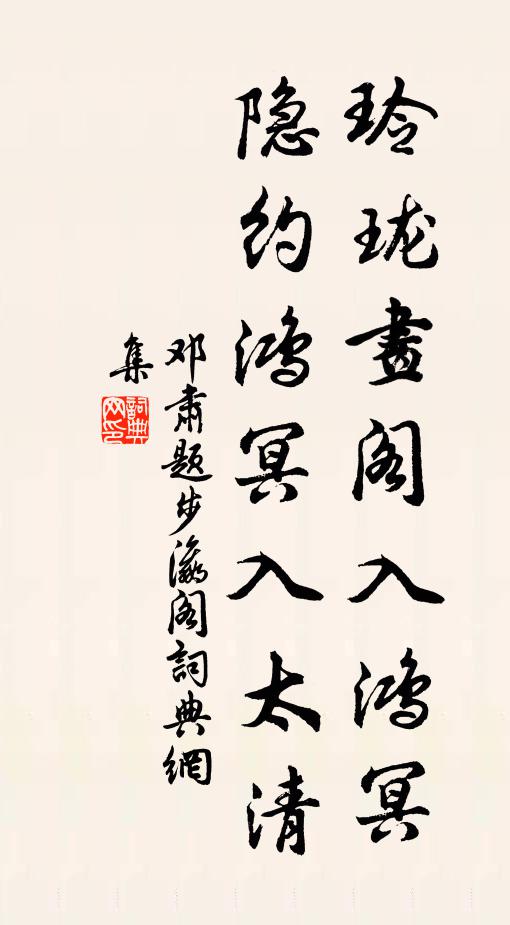 玲珑畫阁入鸿冥
隐约鸿冥入太清
邓肃题步瀛阁詞典網
集
詞典网印